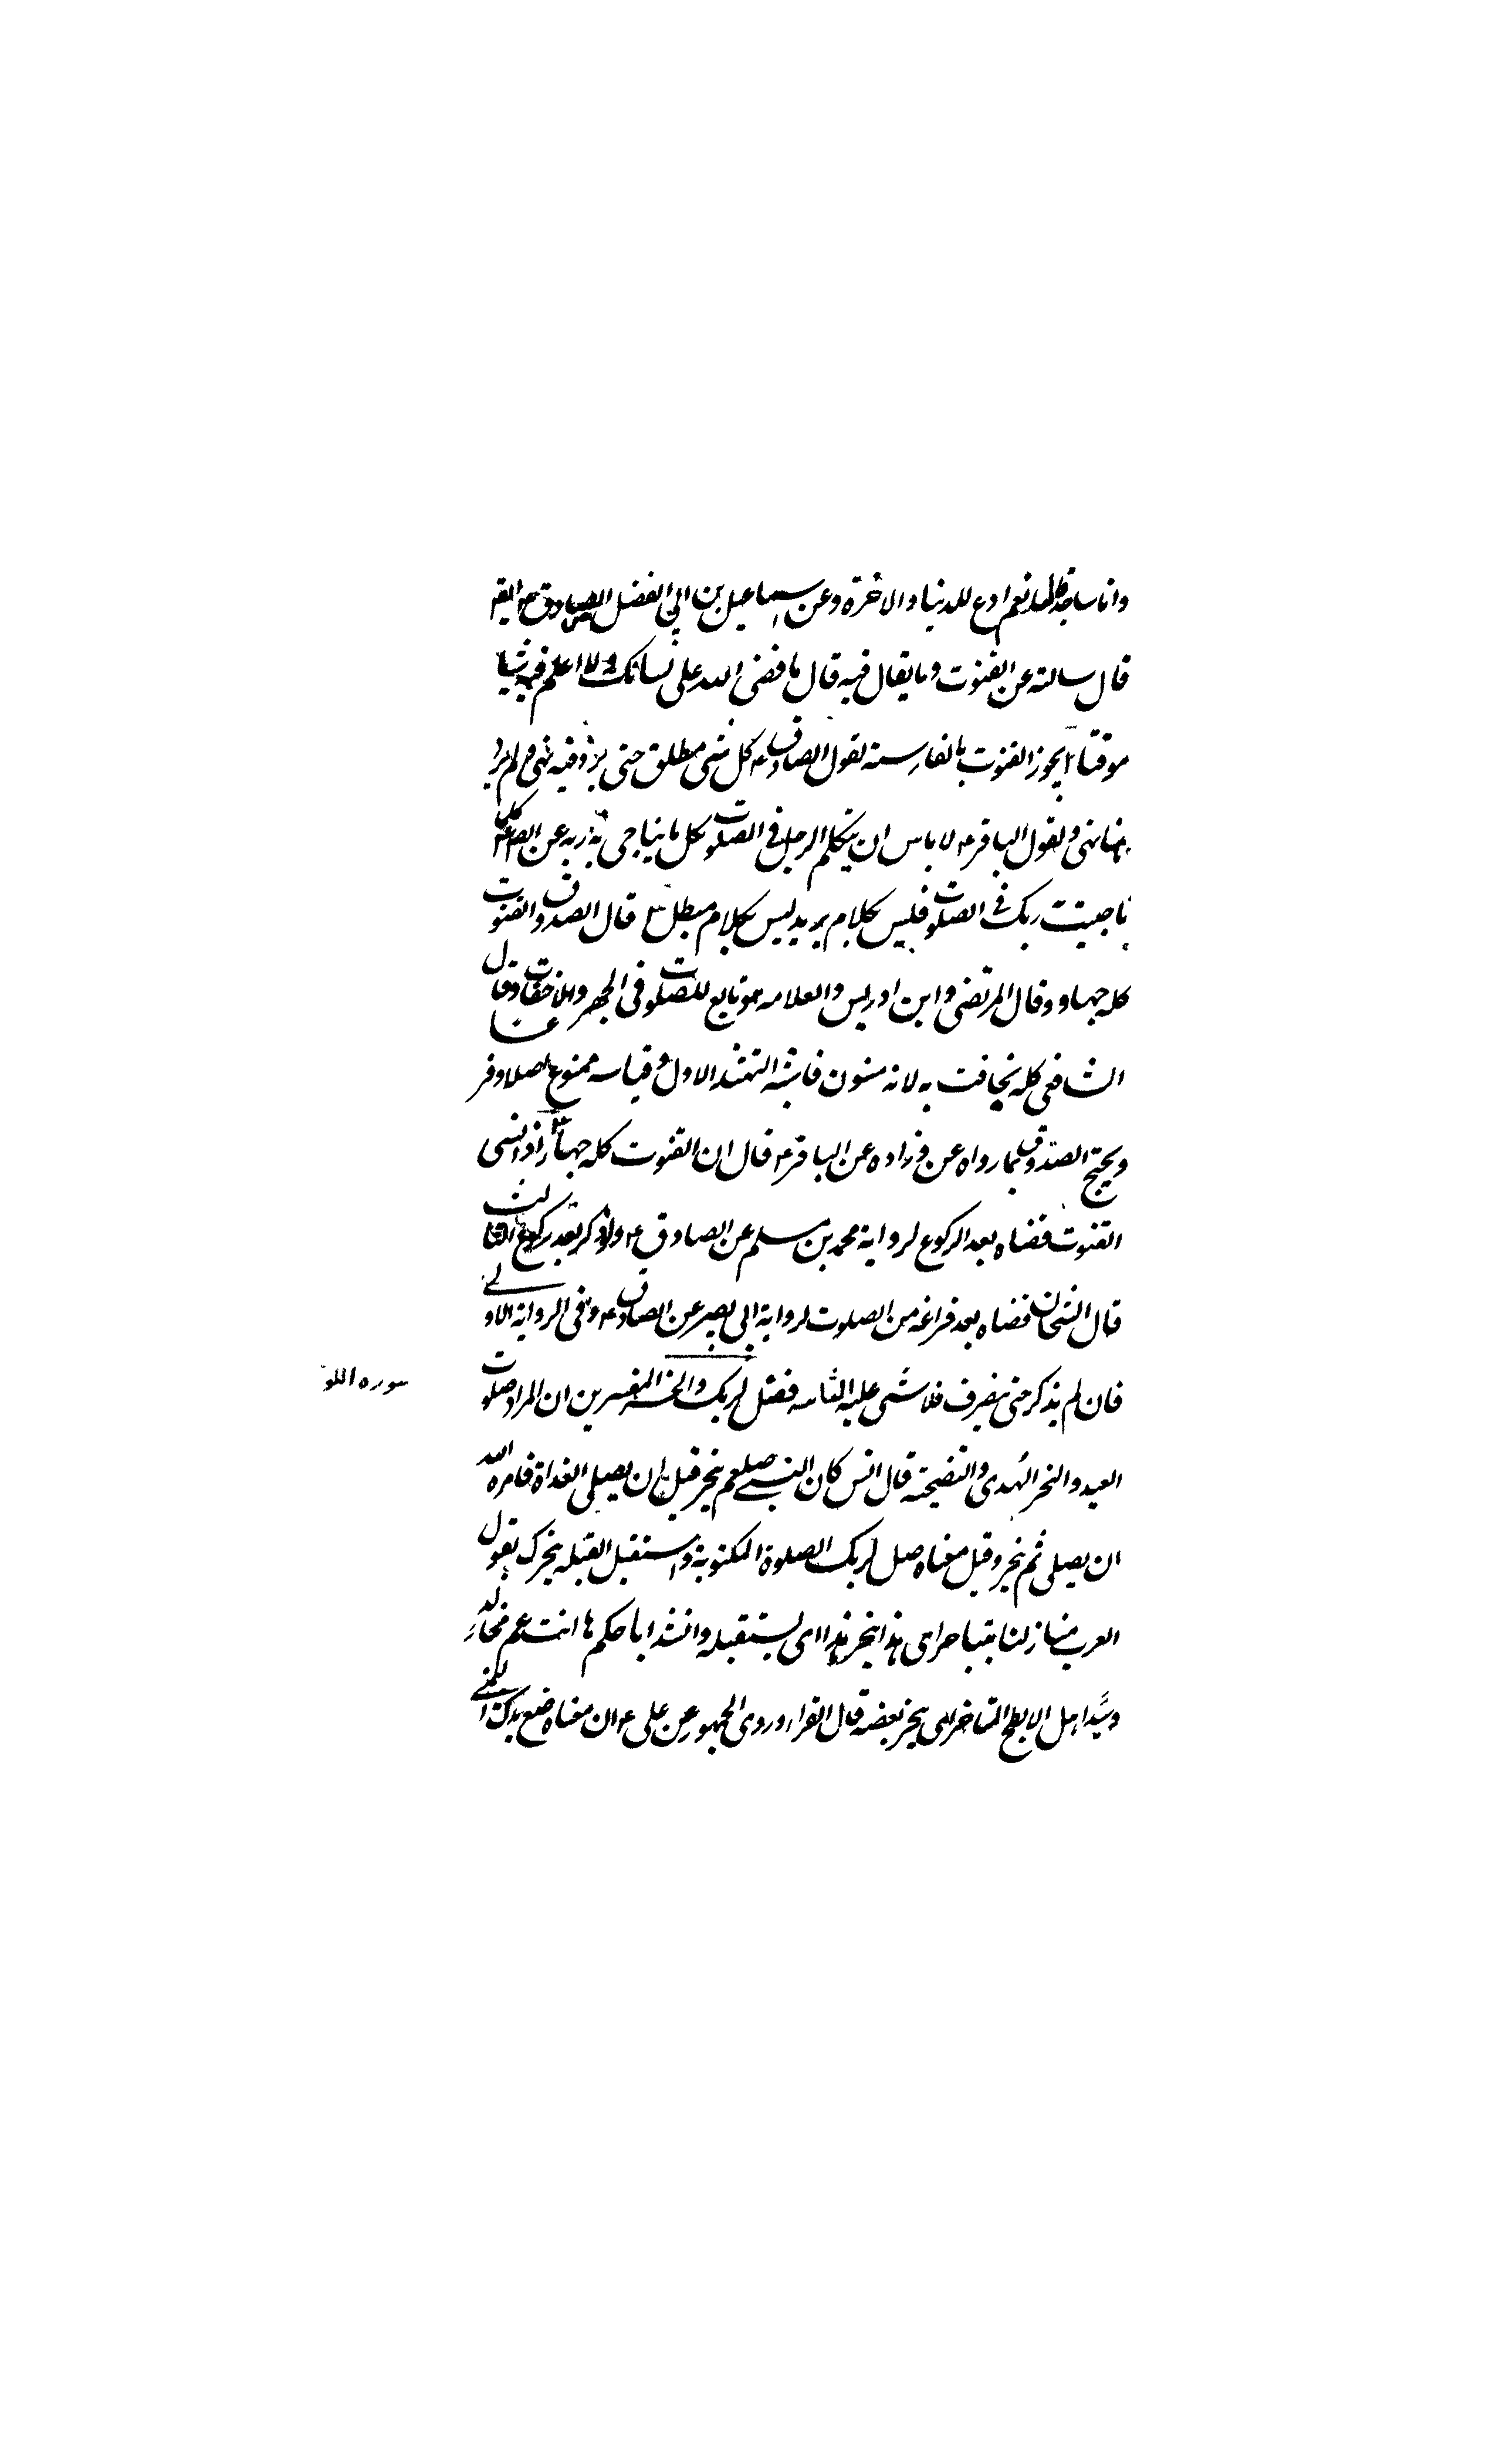 وانا ساجد فقال نعم ادع للدنيا والاخرة وعن اسماعيل بن ابي الفضل الصادق ع ايضا
قال سالته عن القنوت وما يقال فيه قال ما قضى الله على لسانك ولا اعلم فيه شيا
موقتا يجوز القنوت بالفارسية لقول الصادق ع كل شى مطلق حتى يرد فيه نهى ولم يرد
هنا نهى ولقول الباقر ع لا باس ان يتكلم الرجل فى الصلوت بكل ما يناجى به ربه عن الصادق ع كلما
ناجيت ربك فى الصلوت فليس بكلام يريد ليس بكلام مبطل قال الصدوق القنوت
كله جهار وقال المرتضى وابن ادريس والعلامه هو تابع للصلوت فى الجهر والاخفات وقال
الشافعى كله يخافت به لانه مسنون فاشبه التشهد الاول وقياسه ممنوع اصلا وفرعا
ويحتج الصدوق بما رواه عن زراره عن الباقر ع قال ان القنوت كله جهار اذا نسى
القنوت قضاه بعد الركوع لرواية محمد بن مسلم عن الصادق ع ولو ذكر بعد ركوع الثالث
قال الشيخان قضاه بعد فراغه من الصلوت لرواية ابى بصير عن الصادق ع وفى الرواية الاولى
فان لم يذكر حتى ينصرف فلا شى عليه الثامنه فصل لربك وانحر المفسرين ان المراد صلوت
سوره الكو
العيد والنحر الهدى والتضحية قال انس كان النبى صلعم ينحر قبل ان يصلى الغداة فامره الله
ان يصلى ثم ينحر وقيل معناه صل لربك الصلوة المكتوبة واستقبل القبله بنحرك تقول
العرب منازلنا تتناحر اى هذا ينحر هذا اى يستقبله وانشد ابا حكم ها انت عم مجالد
وسيد اهل الابطح المتناحر اى ينحر بعضه قال الفراء وروى الجمهور عن على ع ان معناه ضع يدك اليمنى